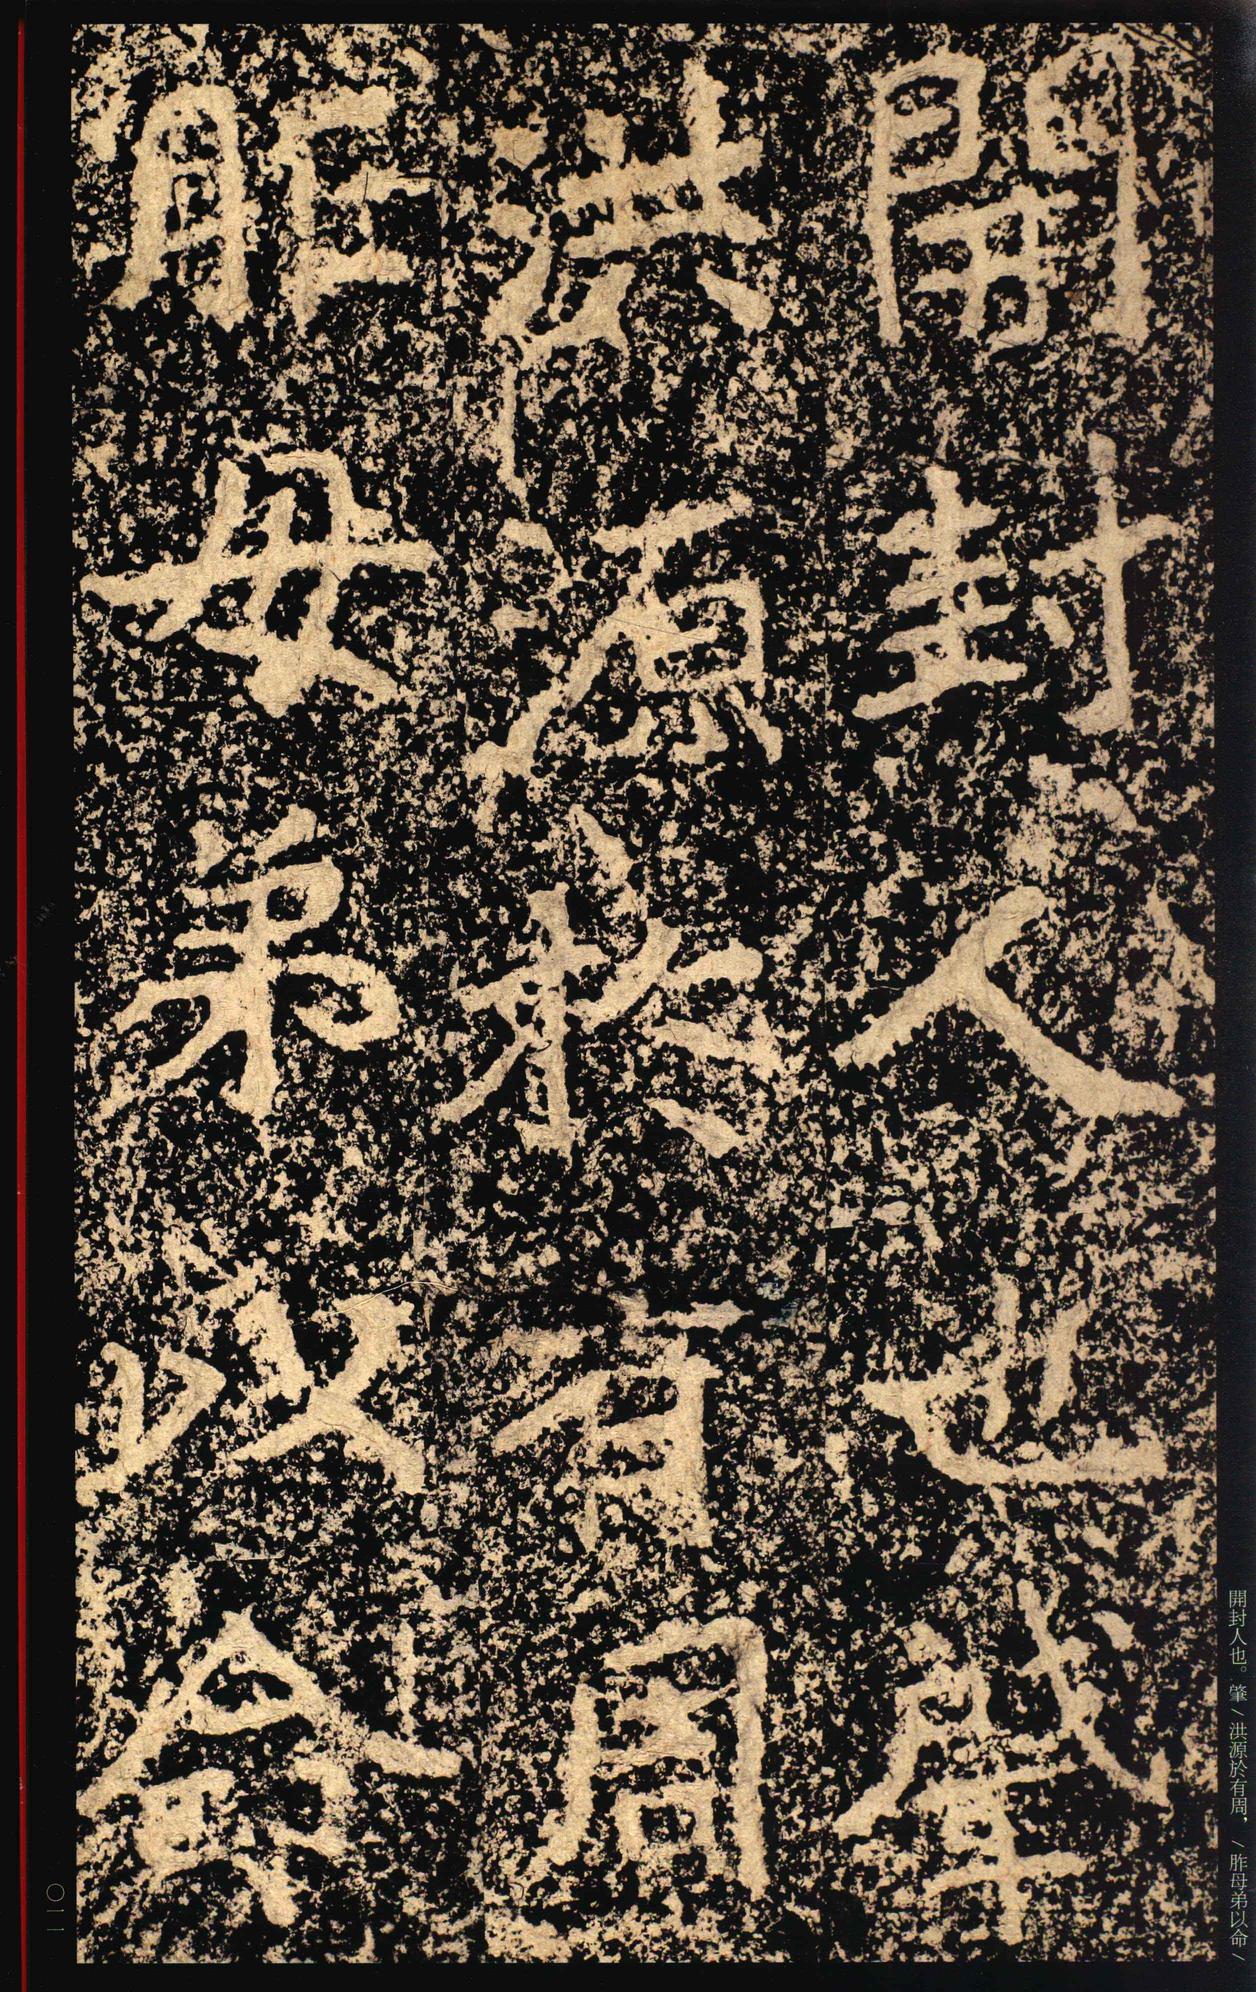 開封人也肇
洪源於有周
胙母弟以命
開封人也。肇／洪源於有周，／胙母弟以命／
〇一一